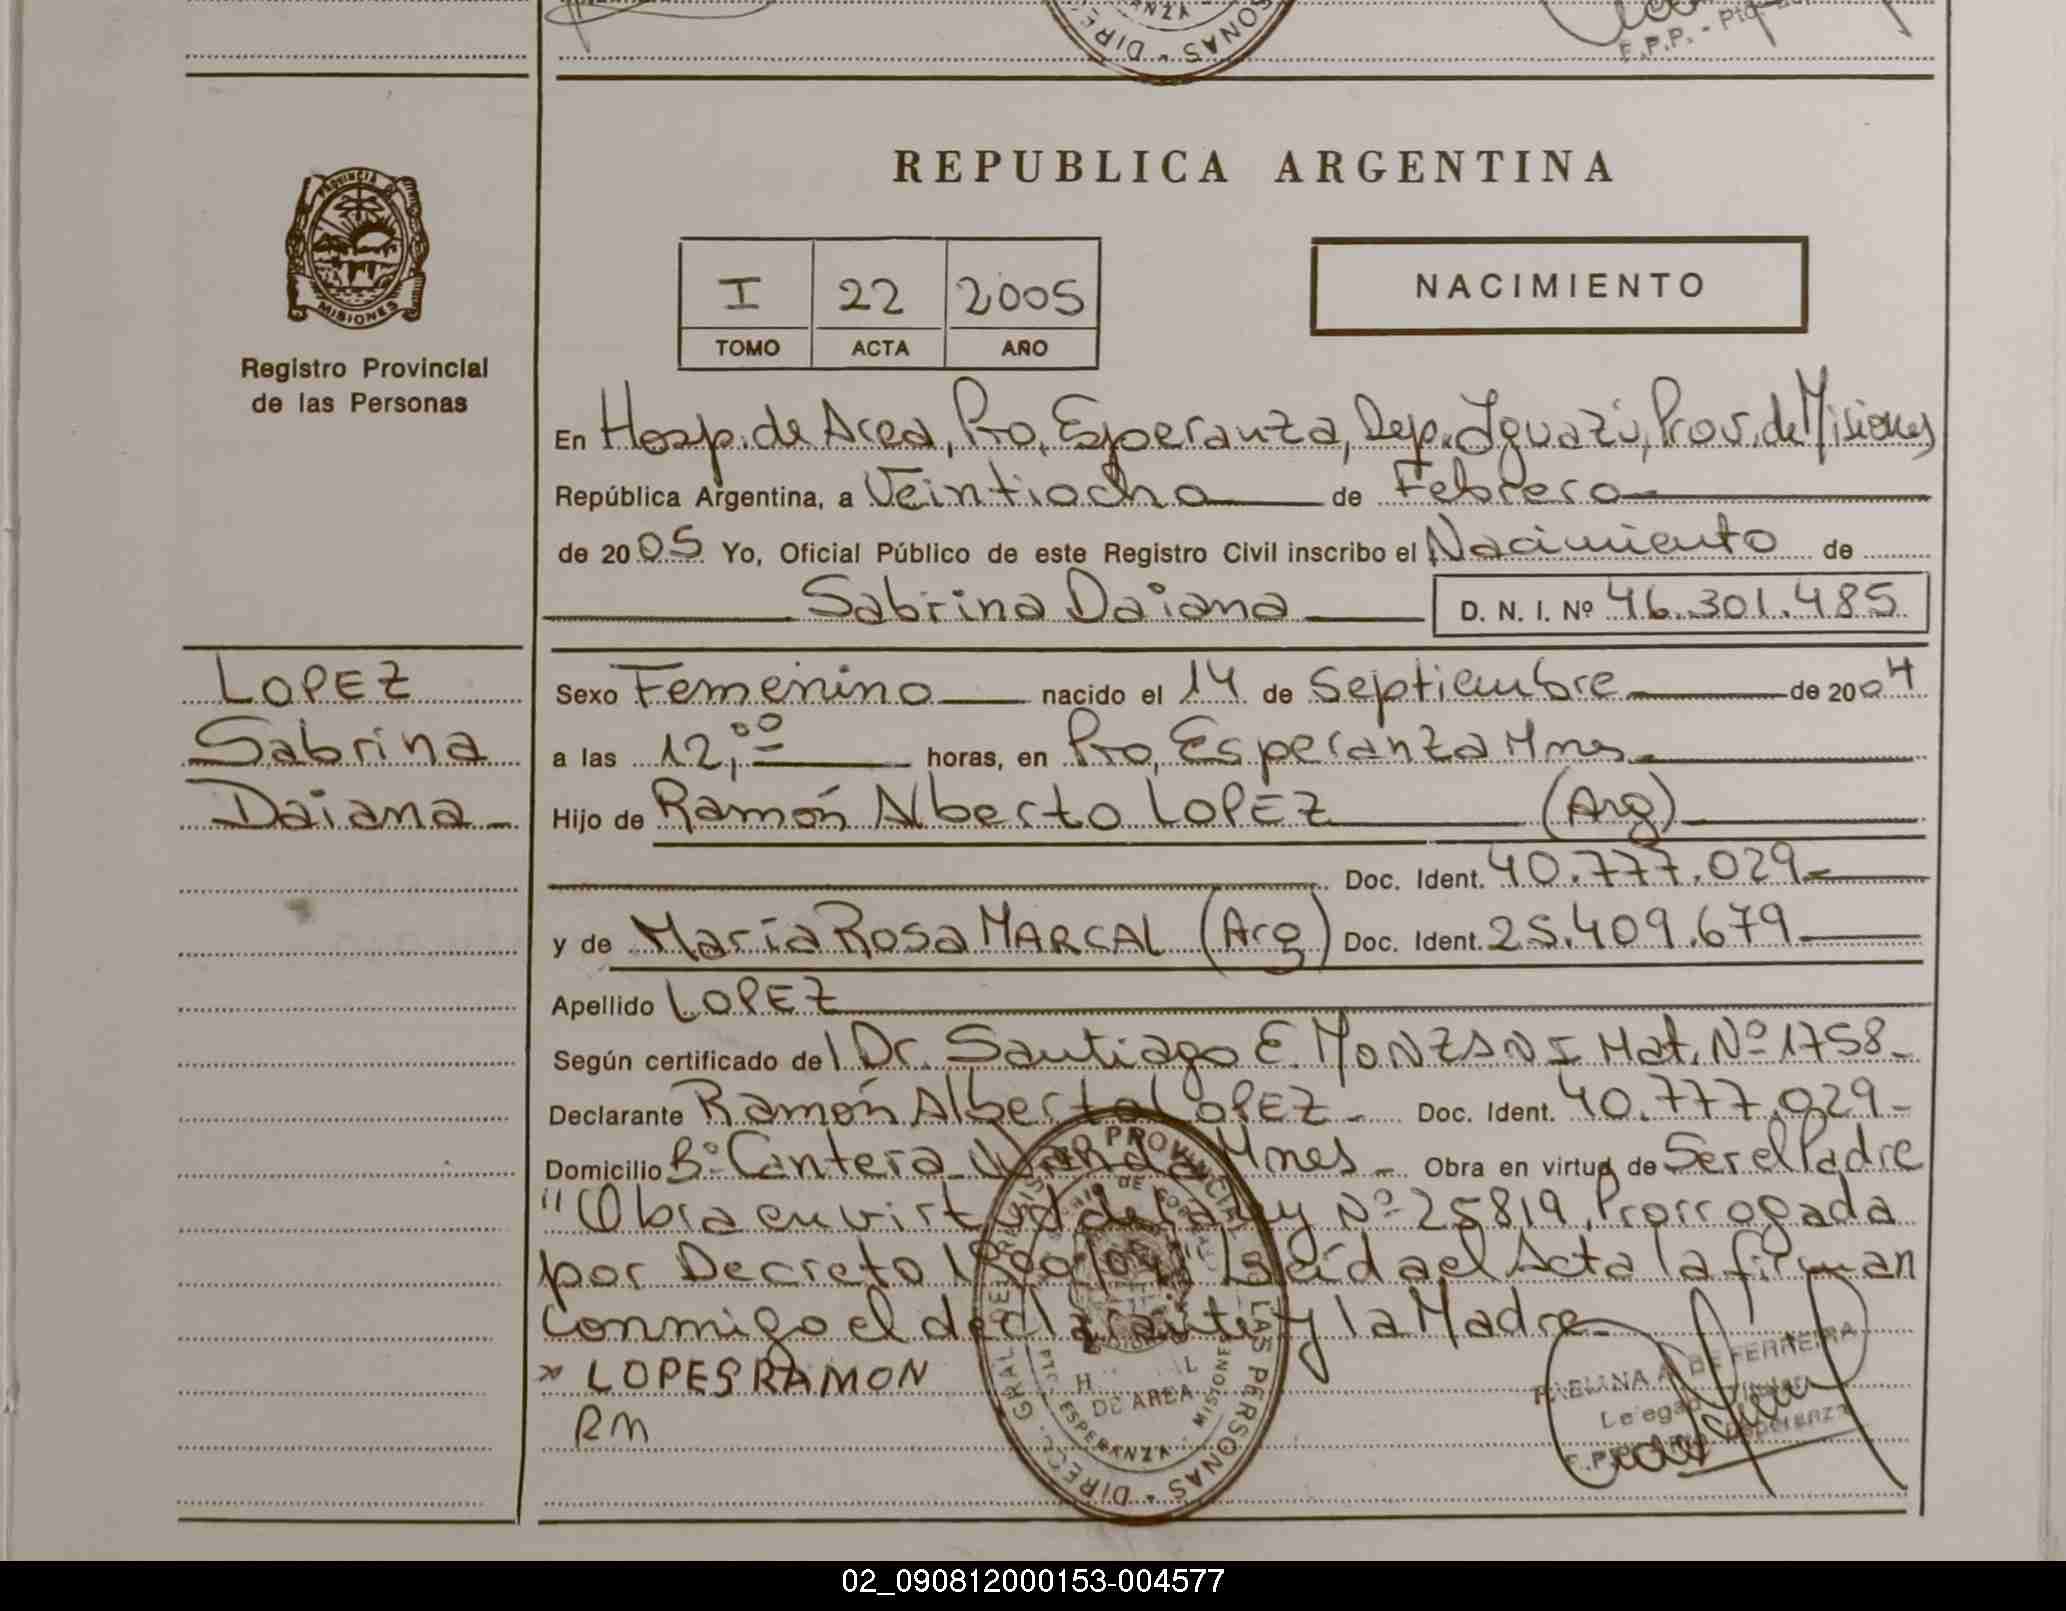 F.P.P. - Pto.
REPUBLICA ARGENTINA
PROVINCIA DE
MISIONES
Registro Provincial
de las Personas
I 22 2005
TOMO ACTA AÑO
NACIMIENTO
En Hosp. de Area, Pto. Esperanza, Dep. Iguazú, Prov. de Misiones
República Argentina, a Veintiocho de Febrero
de 2005 Yo, Oficial Público de este Registro Civil inscribo el Nacimiento de
Sabrina Daiana D. N. I. Nº 46.301.485
LOPEZ
Sabrina
Daiana
Sexo Femenino nacido el 14 de Septiembre de 2004
a las 12,00 horas, en Pto, Esperanza Mnes
Hijo de Ramón Alberto LOPEZ (Arg)
Doc. Ident. 40.777.029
y de María Rosa MARCAL (Arg) Doc. Ident. 25.409.679
Apellido LOPEZ
Según certificado del Dr. Santiago E. MONZANI Mat. Nº 1758
Declarante Ramón Alberto LOPEZ Doc. Ident. 40.777.029
Domicilio Bº Cantera Wanda Mnes Obra en virtud de Ser el Padre
"Obra en virtud de la Ley Nº 25819, Prorrogada
por Decreto Leída el Acta la firman
conmigo el declarante y la Madre
x LOPES RAMON
RM
DIREC. GRAL. DEL REGISTRO PROVINCIAL DE LAS PERSONAS
DE AREA
PTO ESPERANZA - MISIONES
DE FERREIRA
02_090812000153-004577